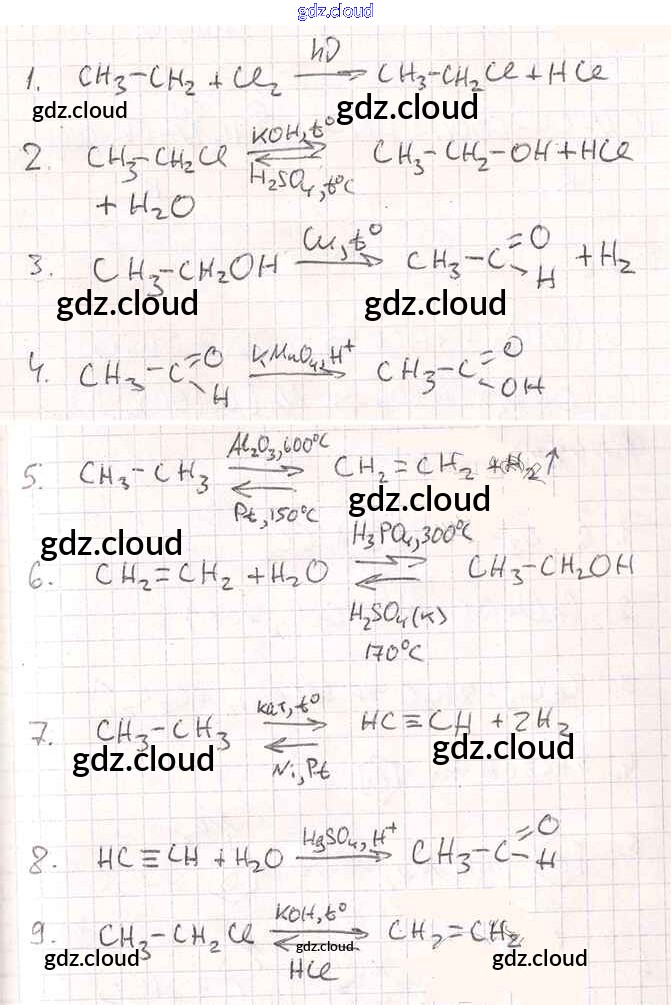 gdz.cloud
1. CH3-CH2 + Cl2 hν → CH3-CH2Cl + HCl
gdz.cloud gdz.cloud
2. CH3-CH2Cl + H2O KOH, t° ⇄ H2SO4, t°C CH3-CH2-OH + HCl
3. CH3-CH2OH Cu, t° → CH3-C=O-H + H2
gdz.cloud gdz.cloud
4. CH3-C=O-H KMnO4, H+ → CH3-C=O-OH
5. CH3-CH3 Al2O3, 600°C ⇄ Pt, 150°C CH2=CH2 + H2↑
gdz.cloud
gdz.cloud
6. CH2=CH2 + H2O H3PO4, 300°C ⇄ H2SO4(к) 170°C CH3-CH2OH
7. CH3-CH3 кат, t° ⇄ Ni, Pt HC≡CH + 2H2
gdz.cloud gdz.cloud
8. HC≡CH + H2O HgSO4, H+ → CH3-C=O-H
9. CH3-CH2Cl KOH, t° ⇄ HCl CH2=CH2
gdz.cloud gdz.cloud gdz.cloud